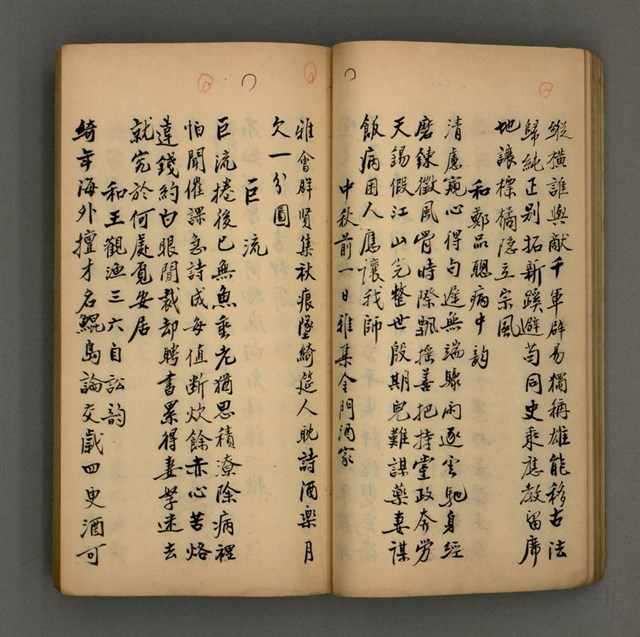 縱橫誰與獻千軍辟易獨稱雄能移古法
歸純正別拓新蹊避苟同史乘應教留席
地讓標橘隱立宗風
和鄭品聰病中韵
清慮窺心得句遲無端驟雨逐雲馳身經
磨鍊徵風骨時際飄搖善把持堂政奔勞
天錫假江山完整世殷期兒難謀藥妻謀
飯病困人應讓我師
中秋前一日雅集金門酒家
雅會群賢集秋痕墜綺筵人耽詩酒樂月
欠一分圓
巨流
巨流捲後已無魚垂老猶思積潦除病裡
怕聞催課急詩成每值斷炊餘赤心苦烙
違錢約白眼閒裁却聘書累得妻孥迷去
就究於何處覓安居
和王觀漁三六自訟韵
綺年海外擅才名鯤島論交歲四更酒可